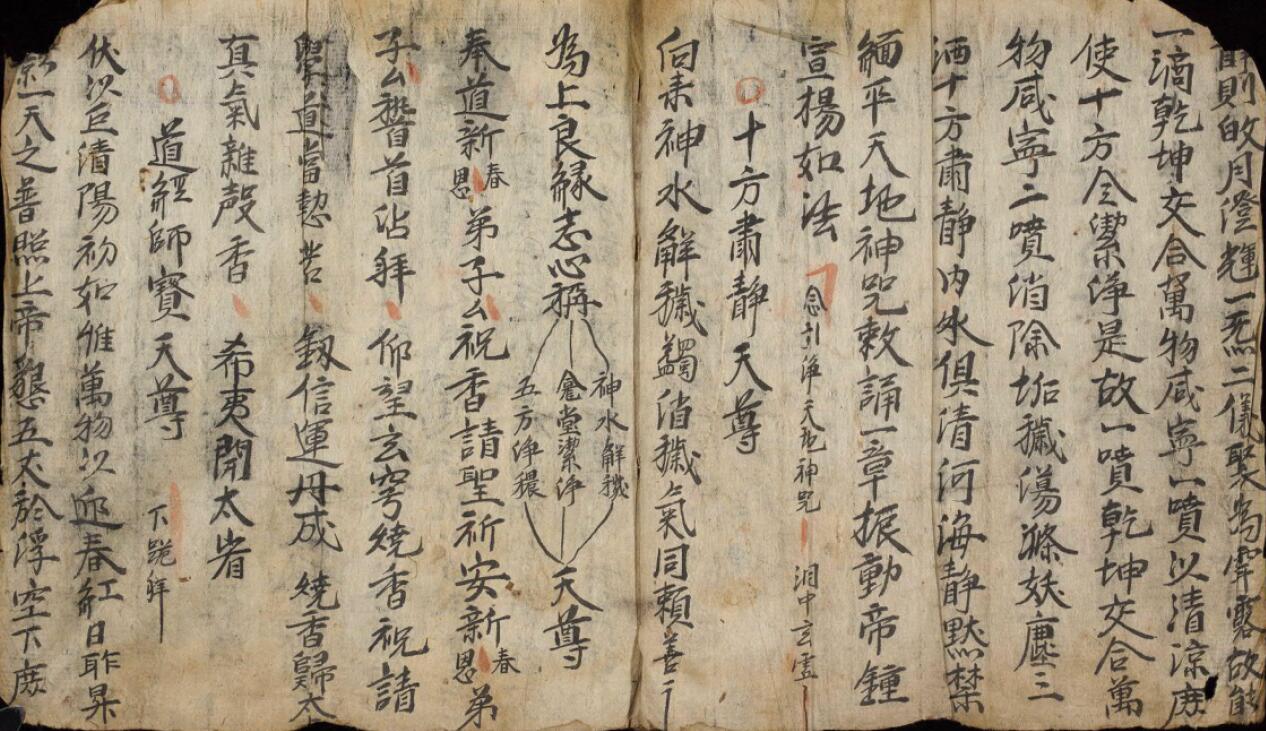 則皎月澄輝一炁二儀聚為霈露故能
一滴乾坤交合萬物咸寧一噴以清涼庶
使十方令潔淨是故一噴乾坤交合萬
物咸寧二噴消除垢穢蕩滌妖塵三
洒十方肅静内外俱清河海静默禁
緬平天地神咒敕誦一章振動帝鐘
宣楊如法 念引净天地神咒 洞中玄虛
十方肅靜天尊
向来神水解穢蠲消穢氣同賴善ニ
為上良緣志心稱 神水解穢 龛堂潔净 五方净穢 天尊
奉道新春恩弟子厶祝香請聖祈安新春恩弟
子厶替首沾拜仰望玄穹繞香祝請
學道當懃苦 釼信運丹成 繞香歸太
真氣雜殸香 希夷開太省
道經師寶天尊 下跪拜
伏以巨清陽初如惟萬物以迎春紅日昨昇
一天之普照上帝懇五太於浮空下庶